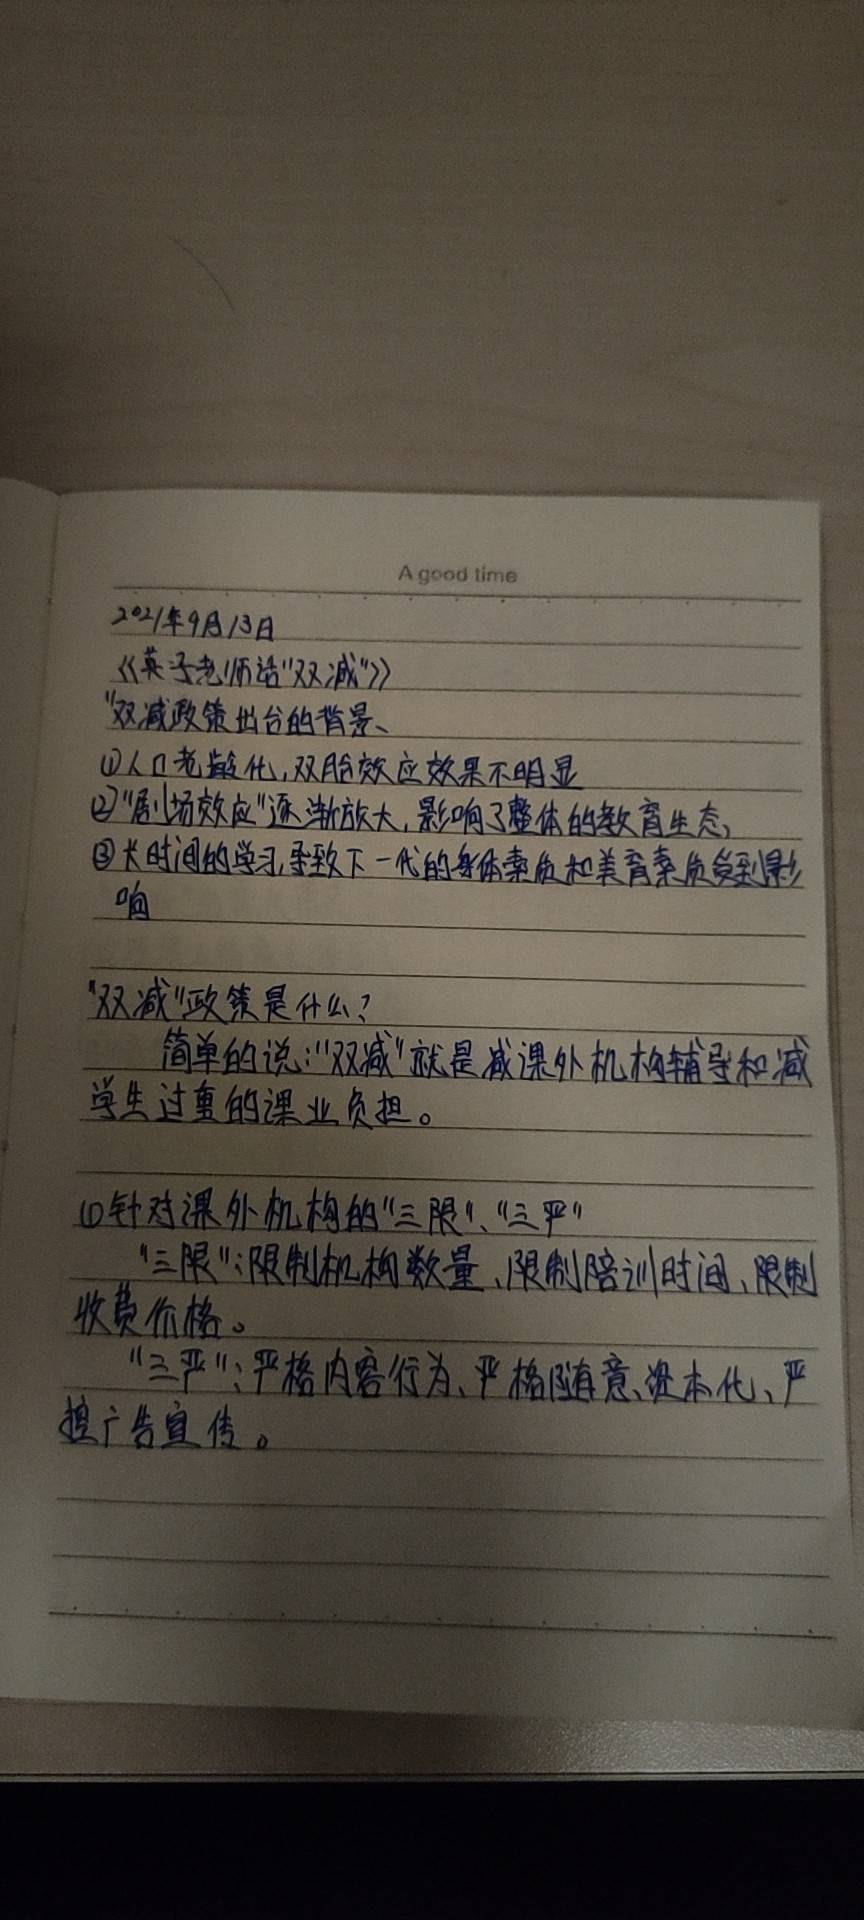 A good time
2021年9月13日
《英子老师话"双减"》
"双减政策出台的背景、
①人口老龄化,双胎效应效果不明显
②"剧场效应"逐渐放大,影响了整体的教育生态,
③长时间的学习,导致下一代的身体素质和美育素质受到影
响
"双减"政策是什么?
简单的说:"双减"就是减课外机构辅导和减
学生过重的课业负担。
①针对课外机构的"三限"、"三严"
"三限":限制机构数量、限制陪训时间、限制
收费价格。
"三严":严格内容行为、严格随意、资本化、严
控广告宣传。